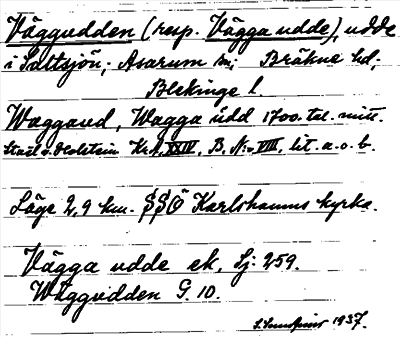 Väggudden (resp. Vägga udde), udde
i Saltsjön; Asarum sn; Bräkne hd;
Blekinge l.
Waggaud, Wagga udd 1700-tal. mitt.
Stael v. Holstein Kr.A. XXIV, B, N:o VIII, lit. a. o. b.
Läge 2,9 km. SSÖ Karlshamns kyrka.
Vägga udde ek. Sj: 259.
Wäggudden G. 10.
1937.